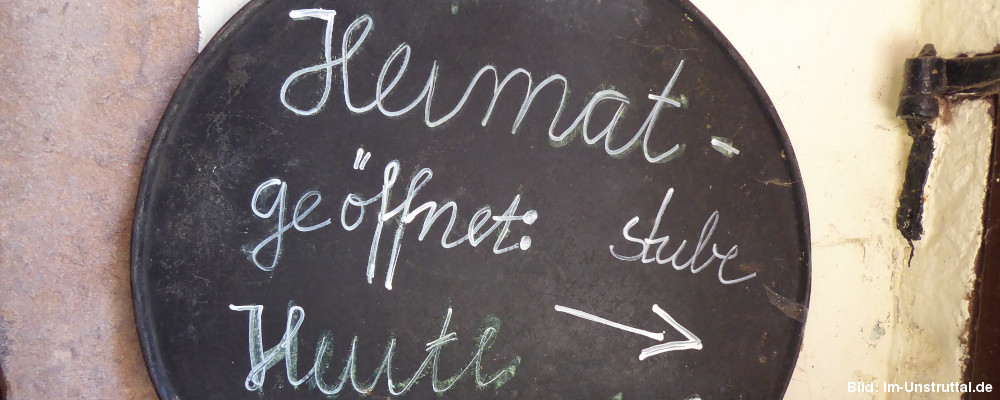 Heimat-
geöffnet: stube
Heute →
Bild: Im-Unstruttal.de